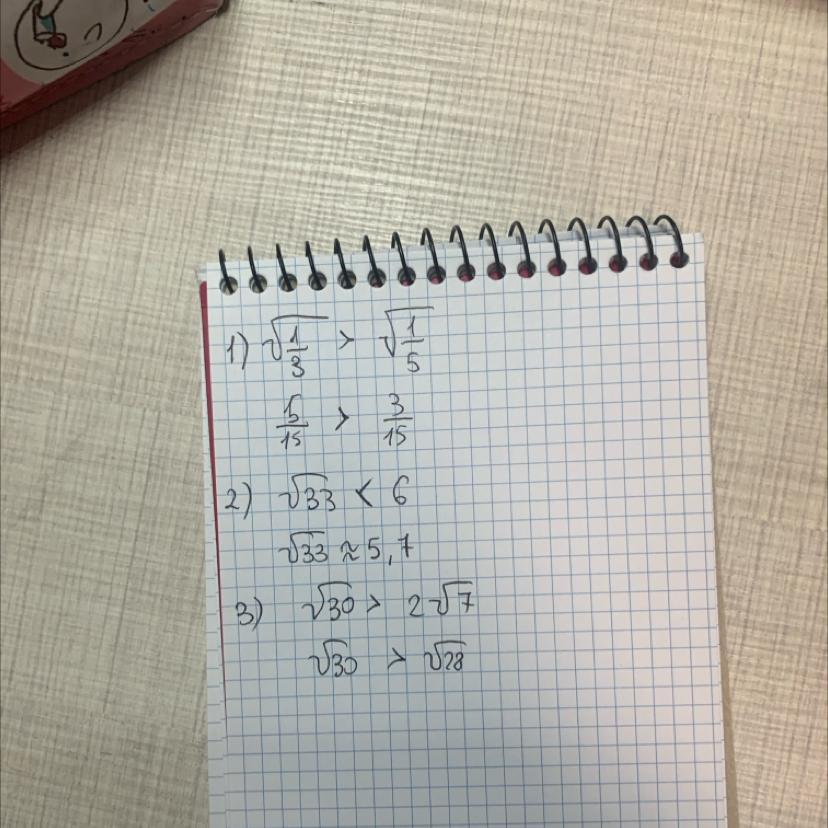 1) √(1/3) > √(1/5)
5/15 > 3/15
2) √33 < 6
√33 ≈ 5,7
3) √30 > 2√7
√30 > √28